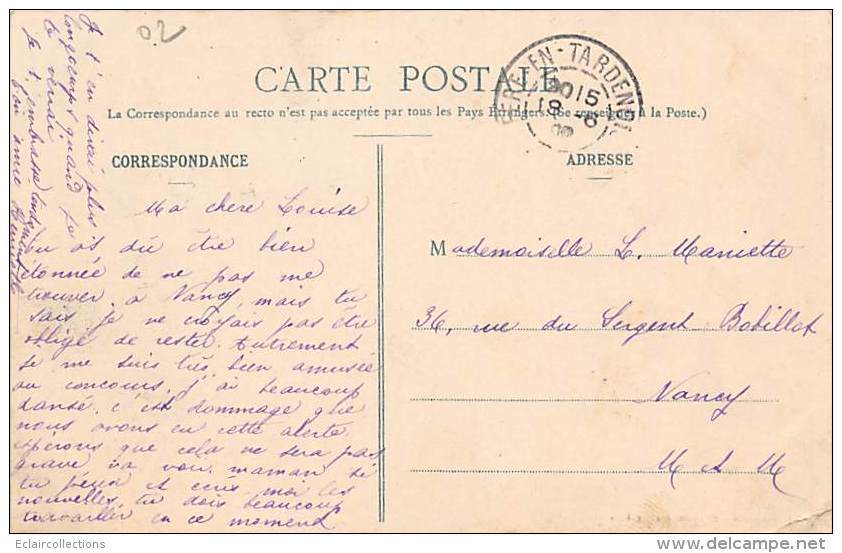 02
CARTE POSTALE
La Correspondance au recto n'est pas acceptée par tous les Pays Étrangers. (Se renseigner à la Poste.)
FERE-EN-TARDENOIS
CORRESPONDANCE
ADRESSE
Ma chere Louise
tu as dû être bien
étonnée de ne pas me
trouver à Nancy, mais tu
sais je ne croyais pas être
obligé de rester. Autrement
je me suis très bien amusée
au concours, j'ai beaucoup
dansé, c'est dommage que
nous avons eu cette alerte
espérons que cela ne sera pas
grave va voir maman si
tu peux et écris moi les
nouvelles, tu dois beaucoup
travailler en ce moment
Je t'en dirai plus
longtemps quand je
te verrai
Je t'embrasse
ton amie
Mademoiselle L. Maniette
36, rue du Sergent Bobillot
Nancy
M et M
Eclaircollections
delcampe.net